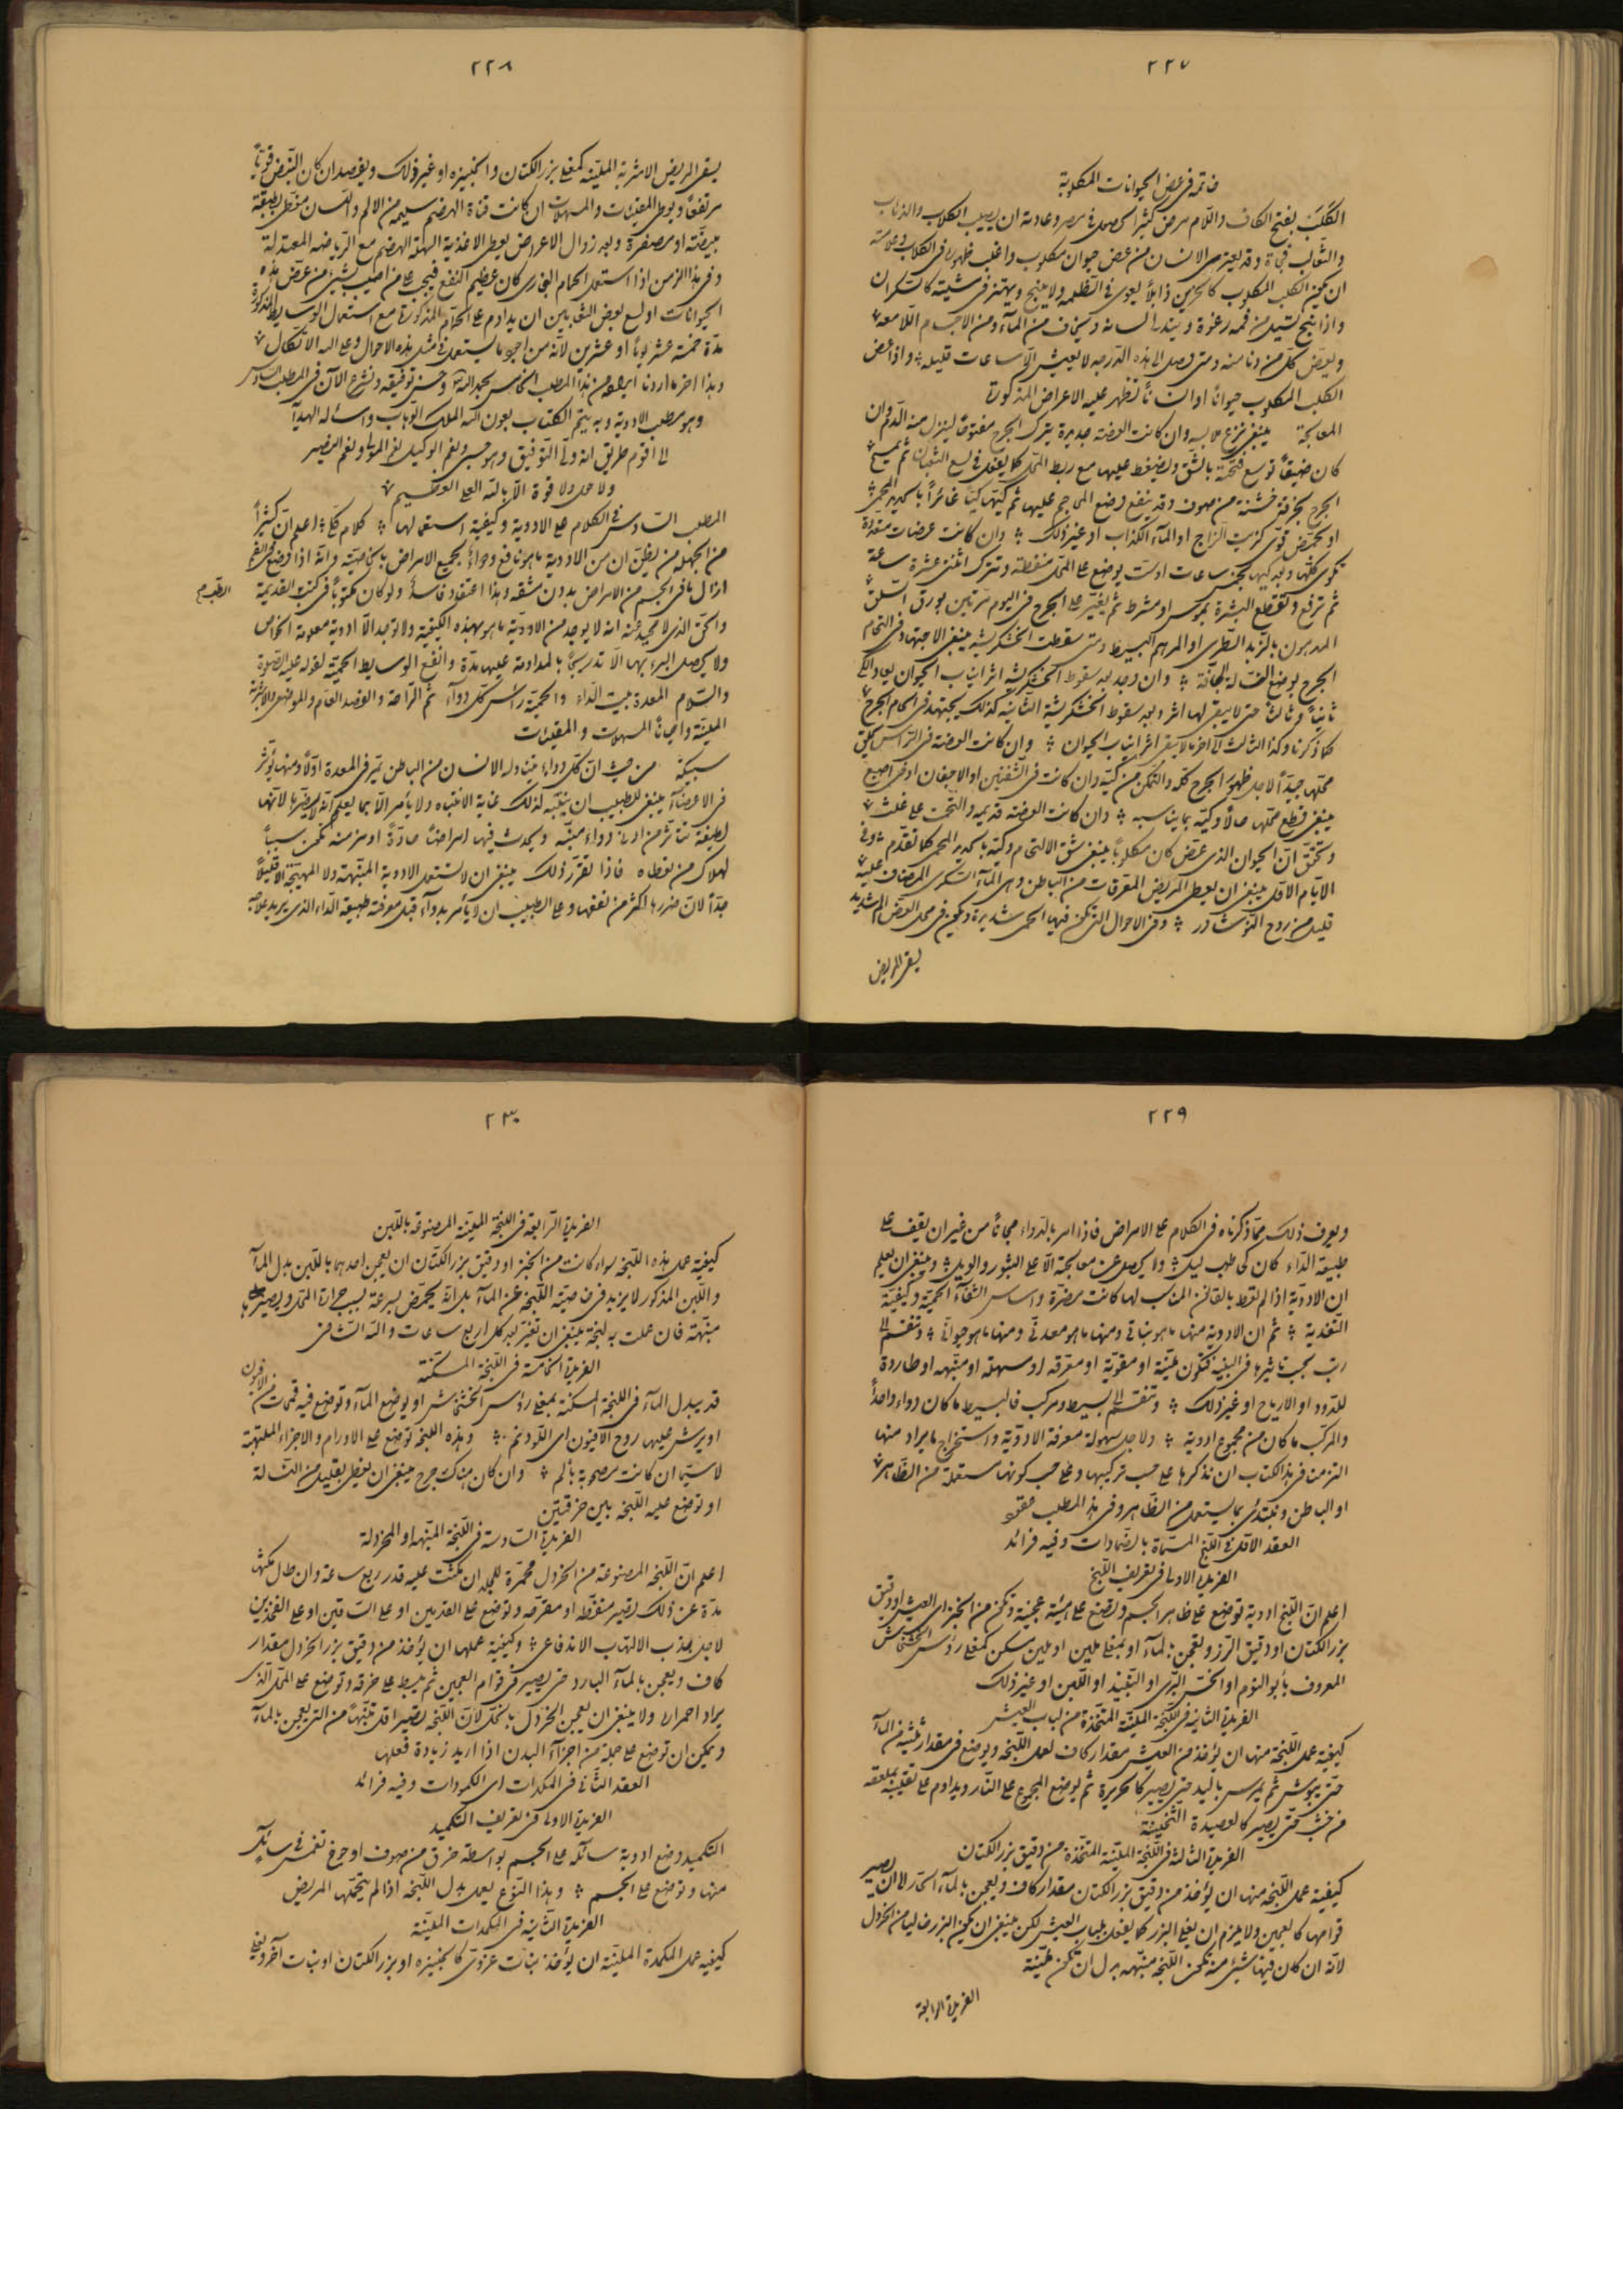 ٢٢٧
خاتمة في عض الحيوانات المكلوبة
الكَلَب بفتح الكاف واللام مرض كثيرا يحصل في مصر وعادته ان يصيب الكلاب والذئاب
والثعالب فجاة وقد يعترى الانسان من عض حيوان مكلوب واغلب ظهوره في الكلاب وعلامته
ان يكون الكلب المكلوب كالحزين ذابلاً يعوى في الظلمه ولا ينبح ويهتز في مشيته كالسكران
واذا نبح تسيل من فمه رغوة ويتدلى لسانه ويخاف من المآء ومن الاجسام اللامعه
ويعض كل من دنا منه ومتى وصل لهذه الدرجه لا يعيش الّا ساعات قليله واذا عض
الكلب المكلوب حيوانا او انسانا تظهر عليه الاعراض المذكورة
المعالجة ينبغى نزع ملابسه وان كانت العضة جديدة يترك الجرح مفتوحا لينزل منه الدم وان
كان ضيقا توسع فتحته بالشق ويضغط عليها مع ربط المحل كما يفعل في لسع الثعبان ثم يمسح
الجرح بخرقة خشنة من صوف وقد ينفع وضع المحاجم عليها ثم كيها كيا غائراً بالحديد المحمى
او بحمض قوى كزيت الزاج او المآء الكذاب او غير ذلك وان كانت عضات متعددة
تكوى كلها وبعد كيها بخمس ساعات او ست يوضع على المحل منفطة وتترك اثنتى عشرة ساعة
ثم ترفع وتقطع البشرة بموس او مشرط ثم يغير على الجرح في اليوم مرتين بورق السلق
المدهون بالزبد الطرى او المرهم البسيط ومتى سقطت الخشكريشة ينبغى الاجتهاد في التحام
الجرح بوضع النسالة الجافة وان وجد بعد سقوط الخشكريشه اثر انياب الحيوان يعاد الكى
ثانيا وثالثا حتى لا يبقى لها اثر وبعد سقوط الخشكريشة الثانيه كذلك يجتهد في التحام الجرح
كما ذكرنا وكذا الثالث الى اخره ما لا يبقى اثر انياب الحيوان وان كانت العضة في الرأس يحلق
محلها جيداً لاجل ظهور الجرح كله والتمكن من كيه وان كانت في الشفتين او الاجفان او في اصبع
ينبغى قطع محلها حالا وكيه بما يناسبه وان كانت العضة قديمه والتحمت على غلث
وتحقق ان الحيوان الذى عض كان مكلوبا ينبغى شق الالتحام وكيه بالحديد المحمى كما تقدم وفى
الايام الاول ينبغى ان يعطى المريض المعرقات من الباطن وهى المآء السكرى المضاف عليه
قليل من روح النوشادر وفى الاحوال التى تكون فيها الحمى شديدة ويكون في محل العض الم شديد
يسقى المريض
٢٢٨
يسقى المريض الاشربة الملينه كمغلى بزر الكتان والخبيزه او غير ذلك ويفصد ان كان النبض قويا
مرتفعا ويعطى المقيئات والمسهلات ان كانت قناة الهضم سليمه من الالم واللسان مغطى بطبقة
مبيضة او مصفرة وبعد زوال الاعراض يعطى الاغذية السهلة الهضم مع الرياضه المعتدلة
وفى هذا الزمن اذا استعمل الحمام البخارى كان عظيم النفع فيجب على من اصيب بشئ من عض هذه
الحيوانات او لسع بعض الثعابين ان يداوم على الحمام المذكور مع استعمال الوسايط المذكورة
مدة خمسة عشر يوما او عشرين لانه من اجود ما يستعمل في مثل هذه الاحوال وعلى الله الاتكال
وهذا اخر ما اردنا ايراده من هذا المطلب الخامس بحمد الله وحسن توفيقه ونشرع الآن في المطلب السادس
وهو مطلب الادوية وبه يتم الكتاب بعون الله الملك الوهاب واسأله الهداية
الى اقوم طريق انه ولى التوفيق وهو حسبى ونعم الوكيل نعم المولى ونعم النصير
ولا حول ولا قوة الّا بالله العلى العظيم
المطلب السادس في الكلام على الادوية وكيفية استعمالها كلام كلى اعلم ان كثيراً
من الجهله من يظن ان من الادوية ما هو نافع ودواءً لجميع الامراض بالخاصية وانه اذا وضع في الفم
ازال ما فى الجسم من الامراض بدون مشقه وهذا اعتقاد فاسد ولو كان مكتوبا في كتب القديمة
الطب صح
والحق الذى لا محيد عنه انه لا يوجد من الادوية ما هو بهذه الكيفية ولا توجد الّا ادوية معلومة الخواص
ولا يحصل البرء بها الّا تدريجا بالمداومة عليها مدة وانفع الوسايط الحمية لقوله عليه الصلوة
والسلام المعدة بيت الداء والحمية راس كل دوآء ثم الراحة والفصد العام والموضعى والاشربة
الملينة واحيانا المسهلات والمقيئات
سبيكة من حيث ان كل دواء يتناوله الانسان من الباطن يمر في المعدة اولا ومنها يؤثر
في الاعضآء ينبغى للطبيب ان ينتبه لذلك غاية الانتباه ولا يأمر الّا بما يعلم انه لا يضرها لانها
لطيفة تتأثر من ادنى دواء منبه ويحدث فيها امراضا حادة او مزمنه تكون سببا
لهلاك من تعطاه فاذا تقرر ذلك ينبغى ان لا تستعمل الادوية المنبهة ولا المهيجة الّا قليلاً
جداً لان ضررها اكثر من نفعها وعلى الطبيب ان لا يأمر بدوآء قبل معرفة طبيعة الداء الذى يريد علاجه
٢٢٩
ويعرف ذلك مما ذكرناه في الكلام على الامراض فاذا امر بالدواء مجانا من غير ان يقف على
طبيعة الداء كان كحاطب ليل ولا يحصل عن معالجته الّا على الثبور والويل وينبغى ان يعلم
ان الادوية اذا لم تعط بالقانون المناسب لها كانت مضرة واساس الشفآء الحمية وكيفية
التغذية ثم ان الادوية منها ما هو نباتى ومنها ما هو معدنى ومنها ما هو حيوانى وتنقسم الى
رتب بحسب تاثيرها في البنيه فتكون ملينة او مقوية او معرقه او مسهله او منبهه او طاردة
للدود او الارياح او غير ذلك وتنقسم الى بسيط ومركب فالبسيط ما كان دواء واحداً
والمركب ما كان من مجموع ادوية ولاجل سهولة معرفة الادوية واستخراج ما يراد منها
التزمت في هذا الكتاب ان نذكرها على حسب تركيبها وعلى حسب كونها مستعملة من الظاهر
او الباطن ونبتدئ بما يستعمل من الظاهر وفى هذا المطلب عقود
العقد الاول في اللبخ المسماة بالضمادات وفيه فرائد
الفريدة الاولى في تعريف اللبخ
اعلم ان اللبخ ادوية توضع على ظاهر الجسم وتصنع على هيئة عجينة وتكون من الخبز اى العيش او دقيق
بزر الكتان او دقيق الرز وتعجن بالمآء او بمغلى ملين او ملين مسكن كمغلى رؤس الخشخاش
المعروف بأبو النوم او الخس البرى او النبيذ او اللبن او غير ذلك
الفريدة الثانيه في اللبخة الملينة المتخذة من لباب العيش
كيفية عمل اللبخة منها ان يؤخذ من العيش مقدار كاف لعمل اللبخه ويوضع في مقدار ثلثيه من المآء
حتى يبوش ثم يمرس باليد حتى يصير كالحريرة ثم يوضع المجموع على النار ويداوم على تقليبه بملعقه
من خشب حتى يصير كالعصيدة الثخينة
الفريدة الثالثة في اللبخة الملينة المتخذة من دقيق بزر الكتان
كيفية عمل اللبخه منها ان يؤخذ من دقيق بزر الكتان مقدار كاف ويعجن بالمآء الحار الى ان يصير
قوامها كالعجين ولا يلزم ان يغلى البزر كما يفعل بلباب العيش لكن ينبغى ان يكون البزر خاليا من الخردل
لانه ان كان فيها شئ منه تكون اللبخه منبهه بدل ان تكون ملينة
الفريدة الرابعة
٢٣٠
الفريدة الرابعة في اللبخة الملينة المصنوعة باللبن
كيفية عمل هذه اللبخه سواء كانت من الخبز او دقيق بزر الكتان ان يعجن احدهما باللبن بدل المآء
واللبن المذكور لا يزيد في خاصية اللبخه عن المآء بل انه يحمض بسرعة بسبب حرارة المحل ويصير
منبهة فان عملت به لبخة ينبغى ان تغير بعد كل اربع ساعات والله الشافى
الفريدة الخامسة في اللبخة المسكنة
قد يبدل المآء في اللبخة المسكنة بمغلى رؤس الخشخاش او يوضع المآء وتوضع فيه قمحات من الافيون
او يرش عليها روح الافيون اى اللودنم وهذه اللبخه توضع على الاورام والاجزاء الملتهبة
لا سيما ان كانت مصحوبة بألم وان كان هناك جرح ينبغى ان يغطى بقليل من النسالة
او توضع عليه اللبخه بين خرقتين
الفريدة السادسة في اللبخة المنبهه او المخردلة
اعلم ان اللبخه المصنوعة من الخردل محمرة للجلد ان مكثت عليه قدر ربع ساعة وان طال مكثها
مدة عن ذلك تصير منفطه او مقرحه وتوضع على القدمين او على الساقين او على الفخذين
لاجل جذب الالتهاب الاندفاعى وكيفية عملها ان يؤخذ من دقيق بزر الخردل مقدار
كاف ويعجن بالمآء البارد حتى يصير في قوام العجين ثم يبسط على خرقه وتوضع على المحل الذى
يراد احمراره ولا ينبغى ان يعجن الخردل بالخل لان اللبخه تصير اقل تنبيهاً من التى يعجن بالمآء
ويمكن ان توضع على جملة من اجزآء البدن اذا اريد زيادة فعلها
العقد الثانى في المكمدات اى الكمودات وفيه فرائد
الفريدة الاولى في تعريف التكميد
التكميد وضع ادوية سائله على الجسم بواسطة خرق من صوف او جوخ تغمس في سائل
منها وتوضع على الجسم وهذا النوع يعمل بدل اللبخه اذا لم يتحملها المريض
الفريدة الثانية في المكمدات الملينة
كيفيه عمل المكمدة الملينة ان يؤخذ نبات غروى كالخبيزه او بزر الكتان او نبات آخر ويغلى